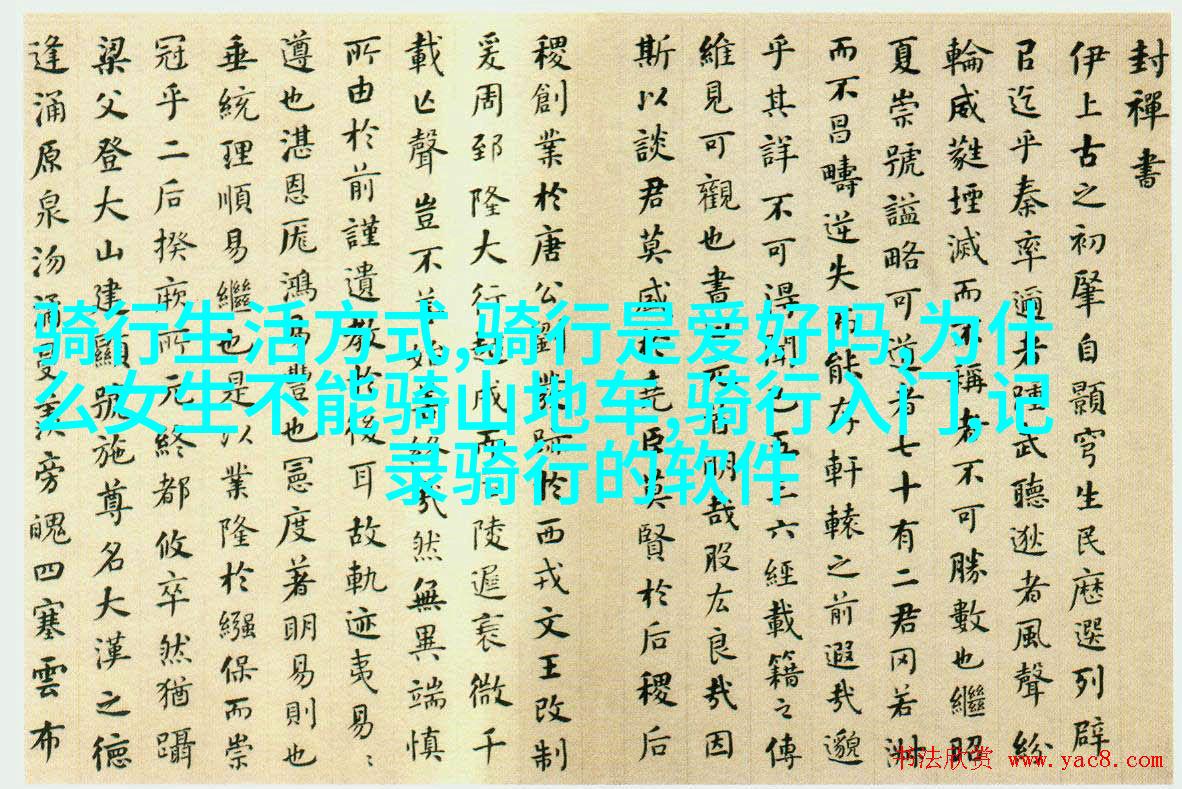 封禪書
伊上古之初肇自顥穹生民歷選列辟
以迄乎秦率邇者踵武聽逖者風聲紛
輪威蕤堙滅而不稱者不可勝數也繼昭
夏崇號謚略可道者七十有二君罔若淑
而不昌疇逆失而能存軒轅之前遐哉邈
乎其詳不可得聞已五三六經載籍之傳
維見可觀也書曰元首明哉股肱良哉因
斯以談君莫盛於堯臣莫賢於后稷后
稷創業於唐公劉發跡於西戎文王改制
爰周郅隆大行越成而后陵遲衰微千
載亡聲豈不善始善終哉然無異端慎
所由於前謹遺教於後耳故軌迹夷易〻
遵也湛恩厖鴻易豐也憲度著明易則也
垂統理順易繼也是以業隆於繈保而崇
冠乎二后揆厥所元終都攸卒然猶躡
梁父登大山建顯號施尊名大漢之德
逢涌原泉沕潏曼羨旁魄四塞雲布
骑行生活方式,骑行是爱好吗,为什
么女生不能骑山地车,骑行入门,记
录骑行的软件
书法欣赏 www.yac8.com